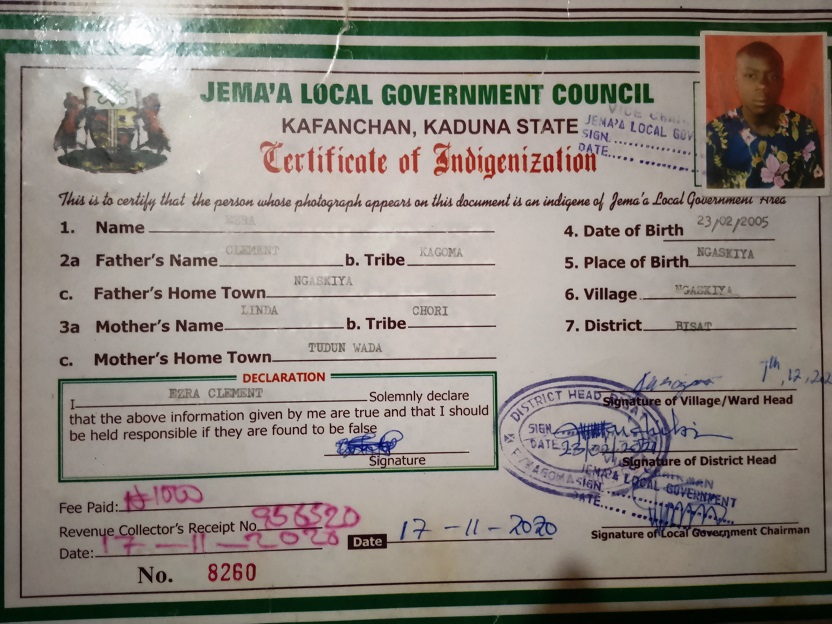 JEMA'A LOCAL GOVERNMENT COUNCIL
KAFANCHAN, KADUNA STATE
Certificate of Indigenization
VICE CHAI
JEMA'A LOCAL GOV
SIGN.
DATE.
This is to certify that the person whose photograph appears on this document is an indigene of Jema'a Local Government Area
1. Name EZRA
4. Date of Birth 23/02/2005
2a Father's Name CLEMENT b. Tribe KAGOMA
5. Place of Birth NGASKIYA
c. Father's Home Town NGASKIYA
6. Village NGASKIYA
3a Mother's Name LINDA b. Tribe CHORI
7. District BISAT
c. Mother's Home Town TUDUN WADA
DECLARATION
I EZRA CLEMENT Solemnly declare
that the above information given by me are true and that I should
be held responsible if they are found to be false
Signature
7th, 12, 202
Signature of Village/Ward Head
DISTRICT HEAD
SIGN
DATE
Signature of District Head
JEMA'A LOCAL GOVERNMENT
SIGN
DATE
Signature of Local Government Chairman
Fee Paid: ₦1000
Revenue Collector's Receipt No 956520
Date: 17-11-2020
Date 17-11-2020
No. 8260